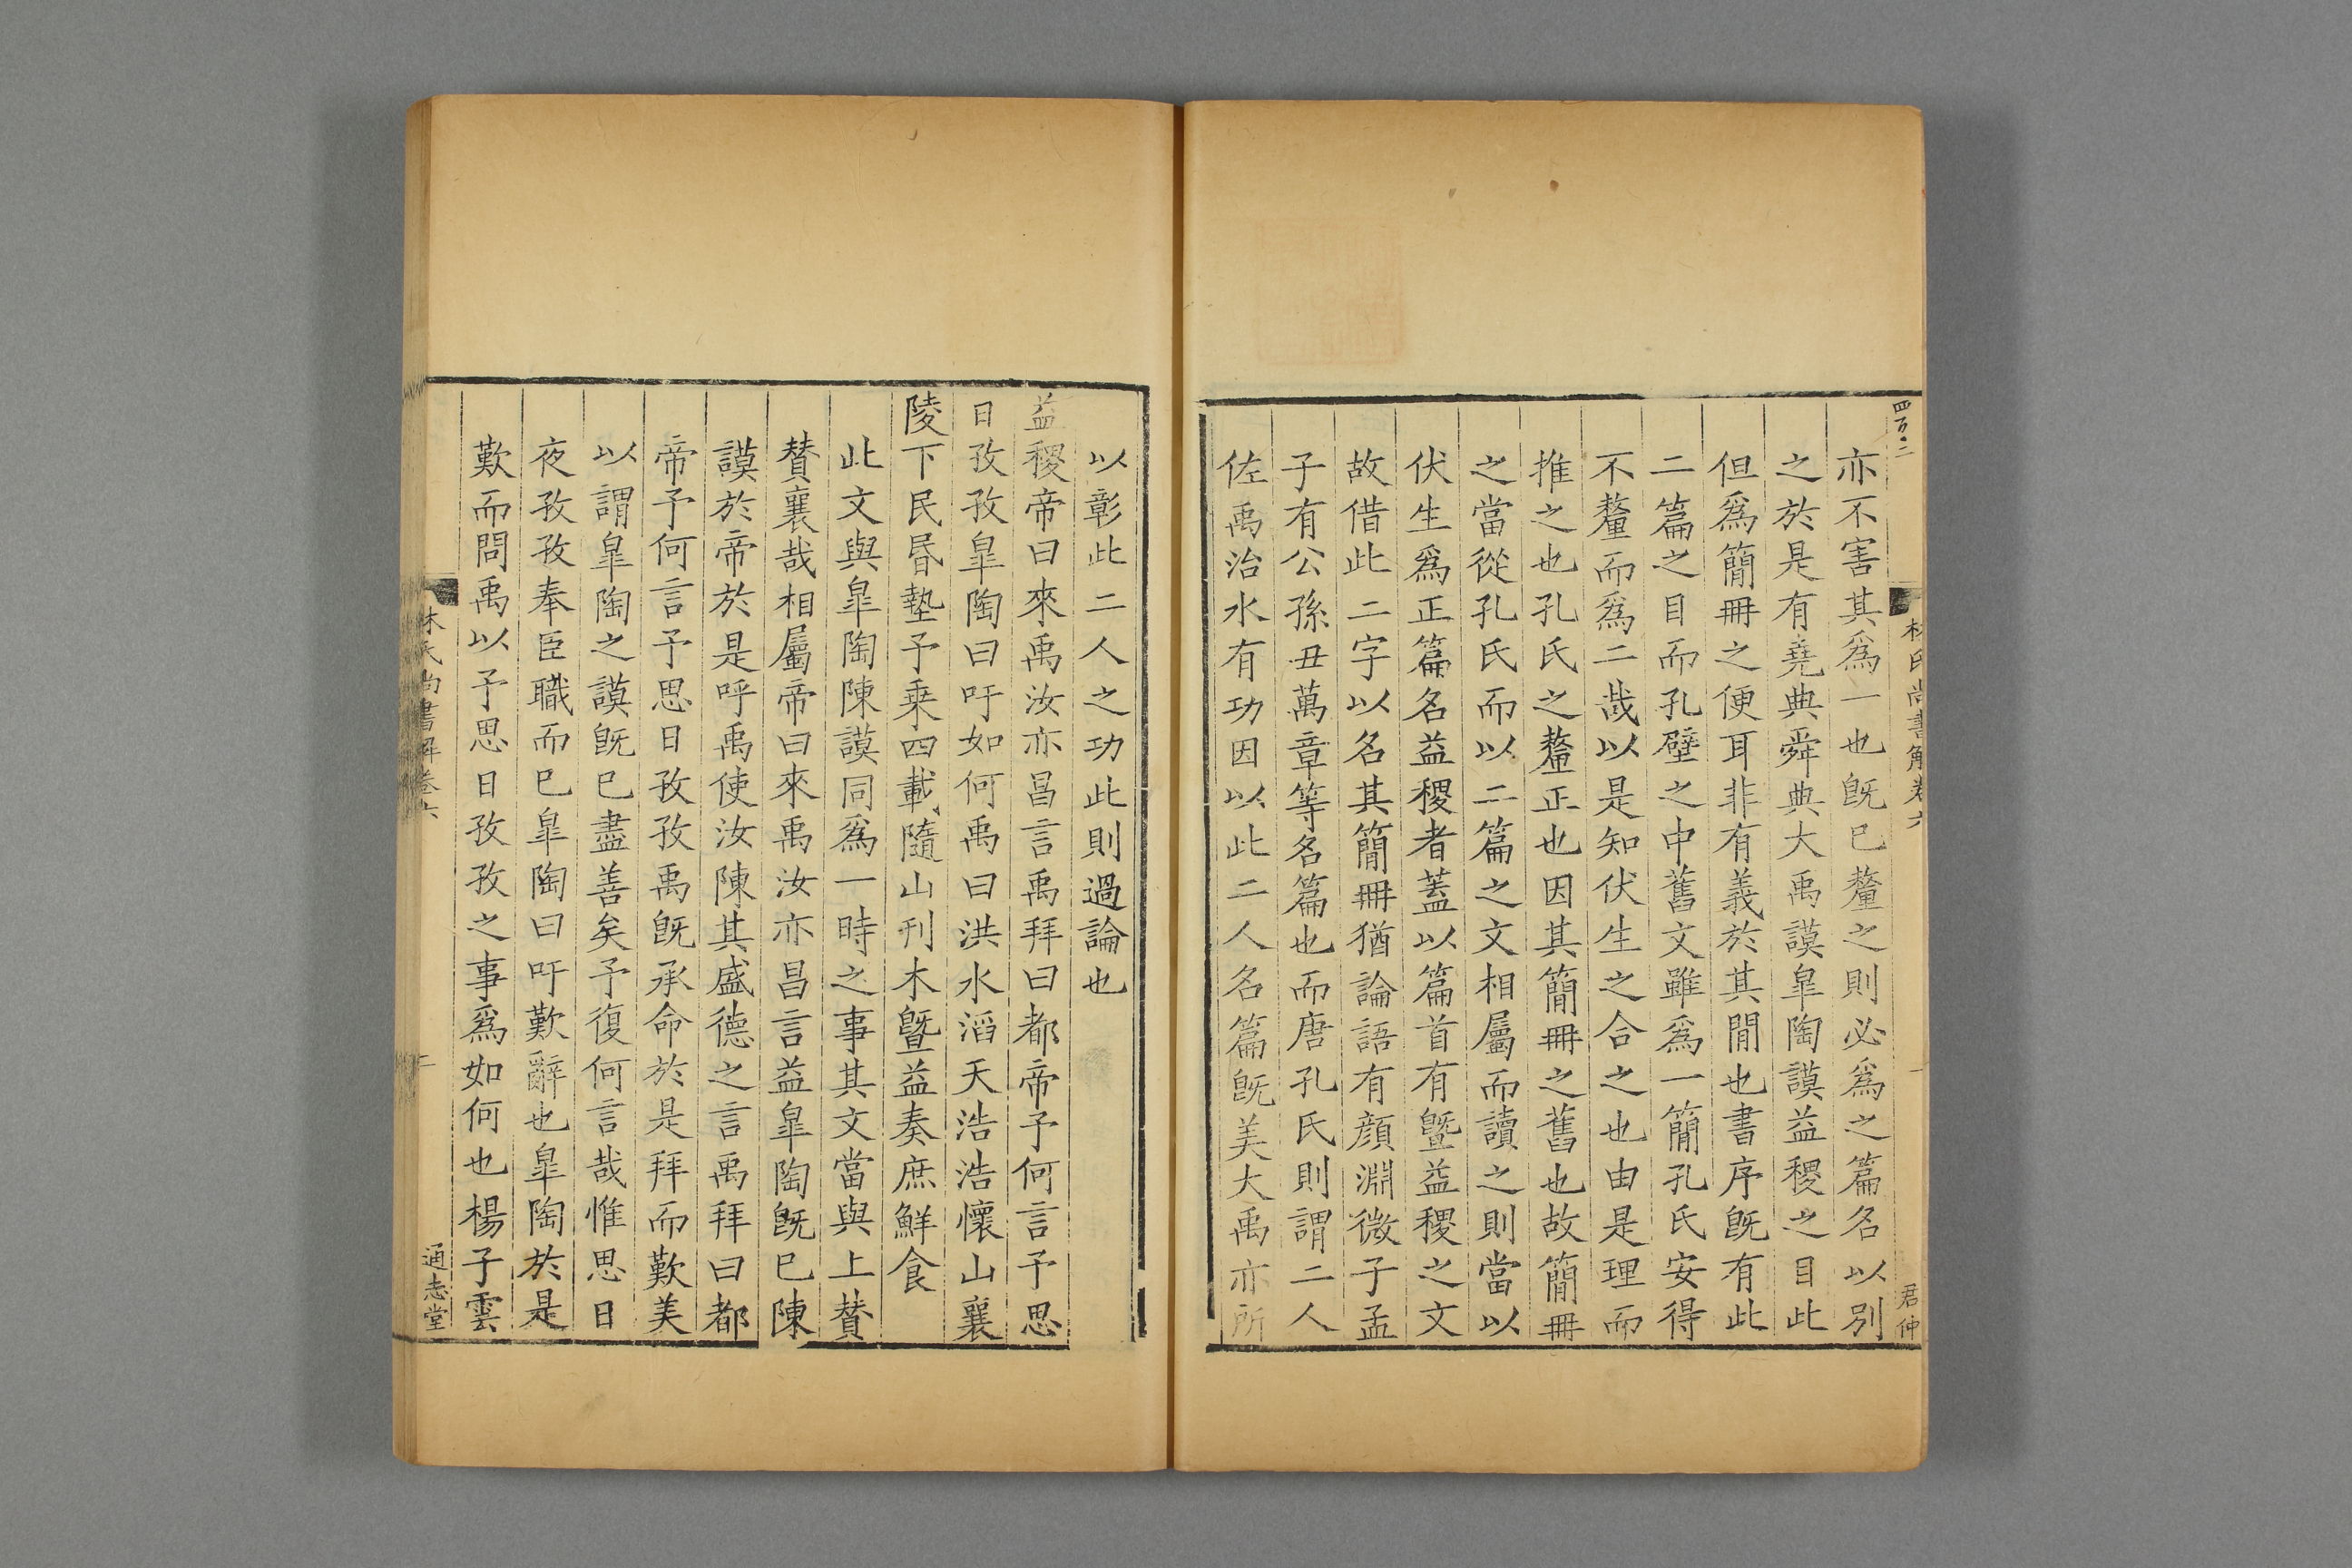 四百二
林氏尚書解卷六
一
君仲
亦不害其爲一也旣已釐之則必爲之篇名以別
之於是有堯典舜典大禹謨皐陶謨益稷之目此
但爲簡冊之便耳非有義於其閒也書序旣有此
二篇之目而孔壁之中舊文雖爲一簡孔氏安得
不釐而爲二哉以是知伏生之合之也由是理而
推之也孔氏之釐正也因其簡冊之舊也故簡冊
之當從孔氏而以二篇之文相屬而讀之則當以
伏生爲正篇名益稷者蓋以篇首有曁益稷之文
故借此二字以名其簡冊猶論語有顔淵微子孟
子有公孫丑萬章等名篇也而唐孔氏則謂二人
佐禹治水有功因以此二人名篇旣美大禹亦所
以彰此二人之功此則過論也
益稷帝曰來禹汝亦昌言禹拜曰都帝予何言予思
日孜孜皐陶曰吁如何禹曰洪水滔天浩浩懷山襄
陵下民昬墊予乗四載隨山刊木曁益奏庶鮮食
此文與皐陶陳謨同爲一時之事其文當與上賛
賛襄哉相屬帝曰來禹汝亦昌言益皐陶旣已陳
謨於帝於是呼禹使汝陳其盛德之言禹拜曰都
帝予何言予思日孜孜禹旣承命於是拜而歎美
以謂皐陶之謨旣已盡善矣予復何言哉惟思日
夜孜孜奉臣職而已皐陶曰吁歎辭也皐陶於是
歎而問禹以予思日孜孜之事爲如何也楊子雲
林氏尚書解卷六
通志堂